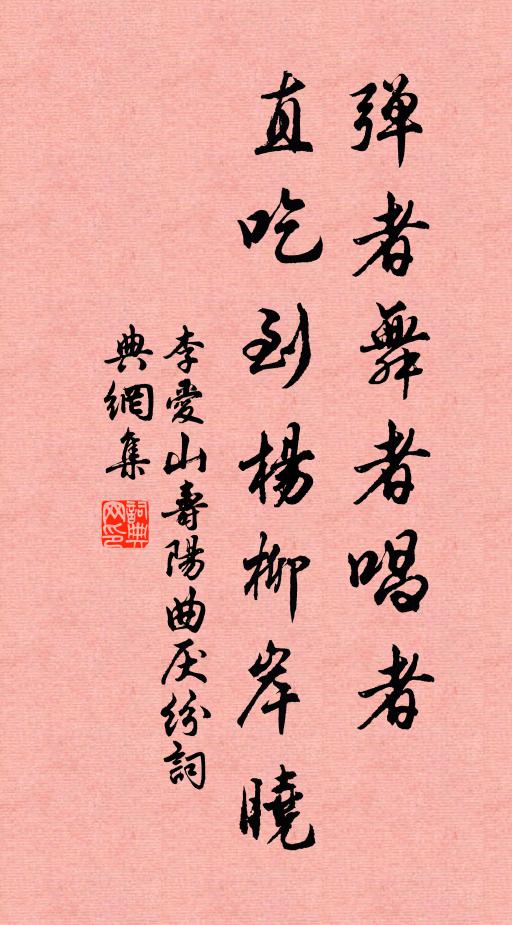 弹者舞者唱者
直吃到楊柳岸曉
李愛山壽陽曲厌纷詞
典網集
詞典
网印